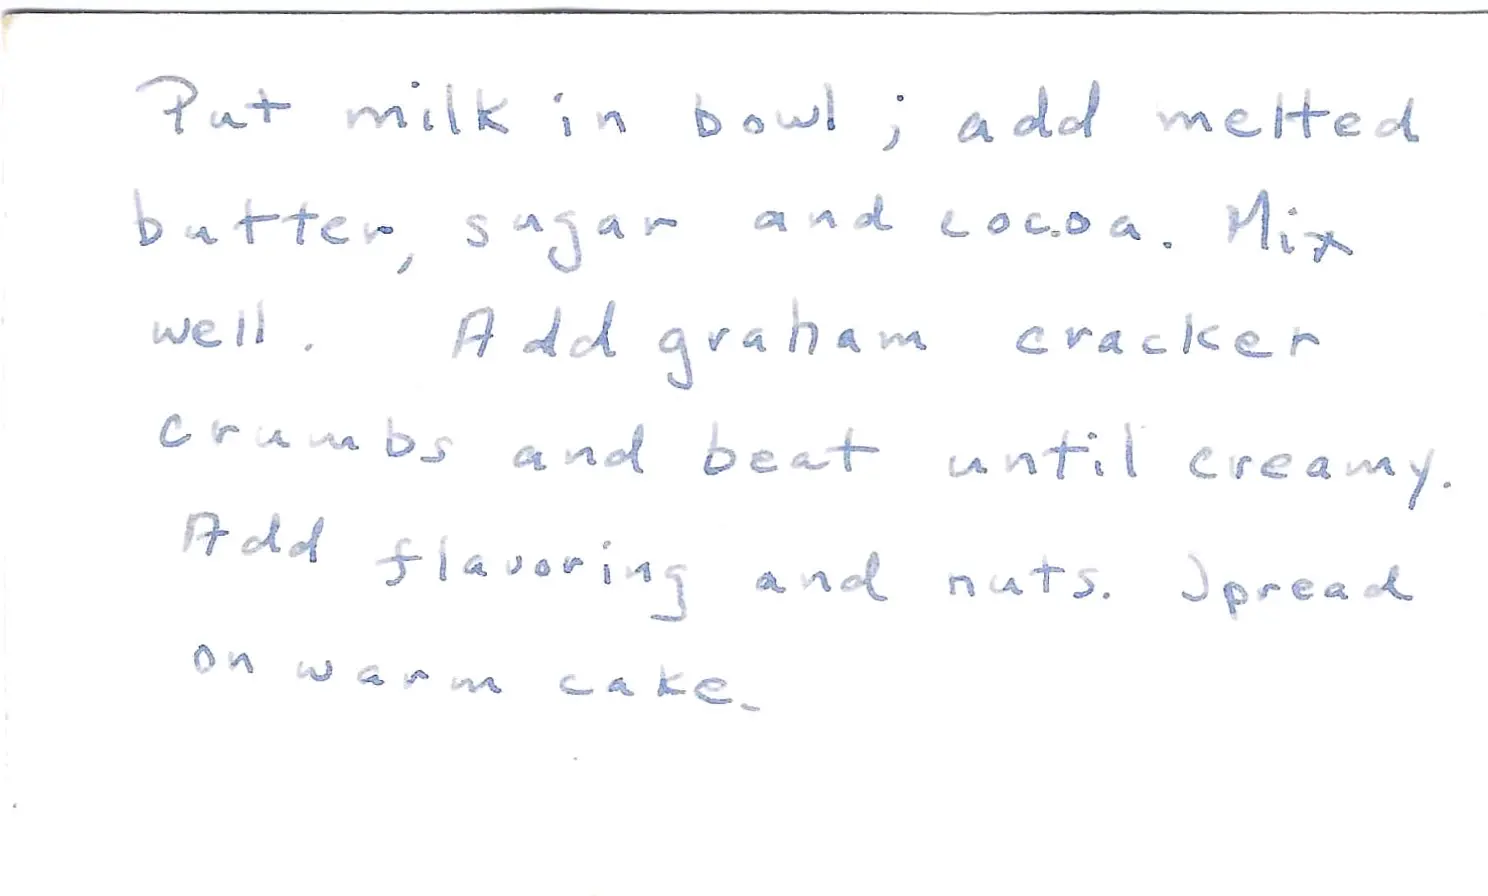 Put milk in bowl; add melted
butter, sugar and cocoa. Mix
well. Add graham cracker
crumbs and beat until creamy.
Add flavoring and nuts. Spread
on warm cake.